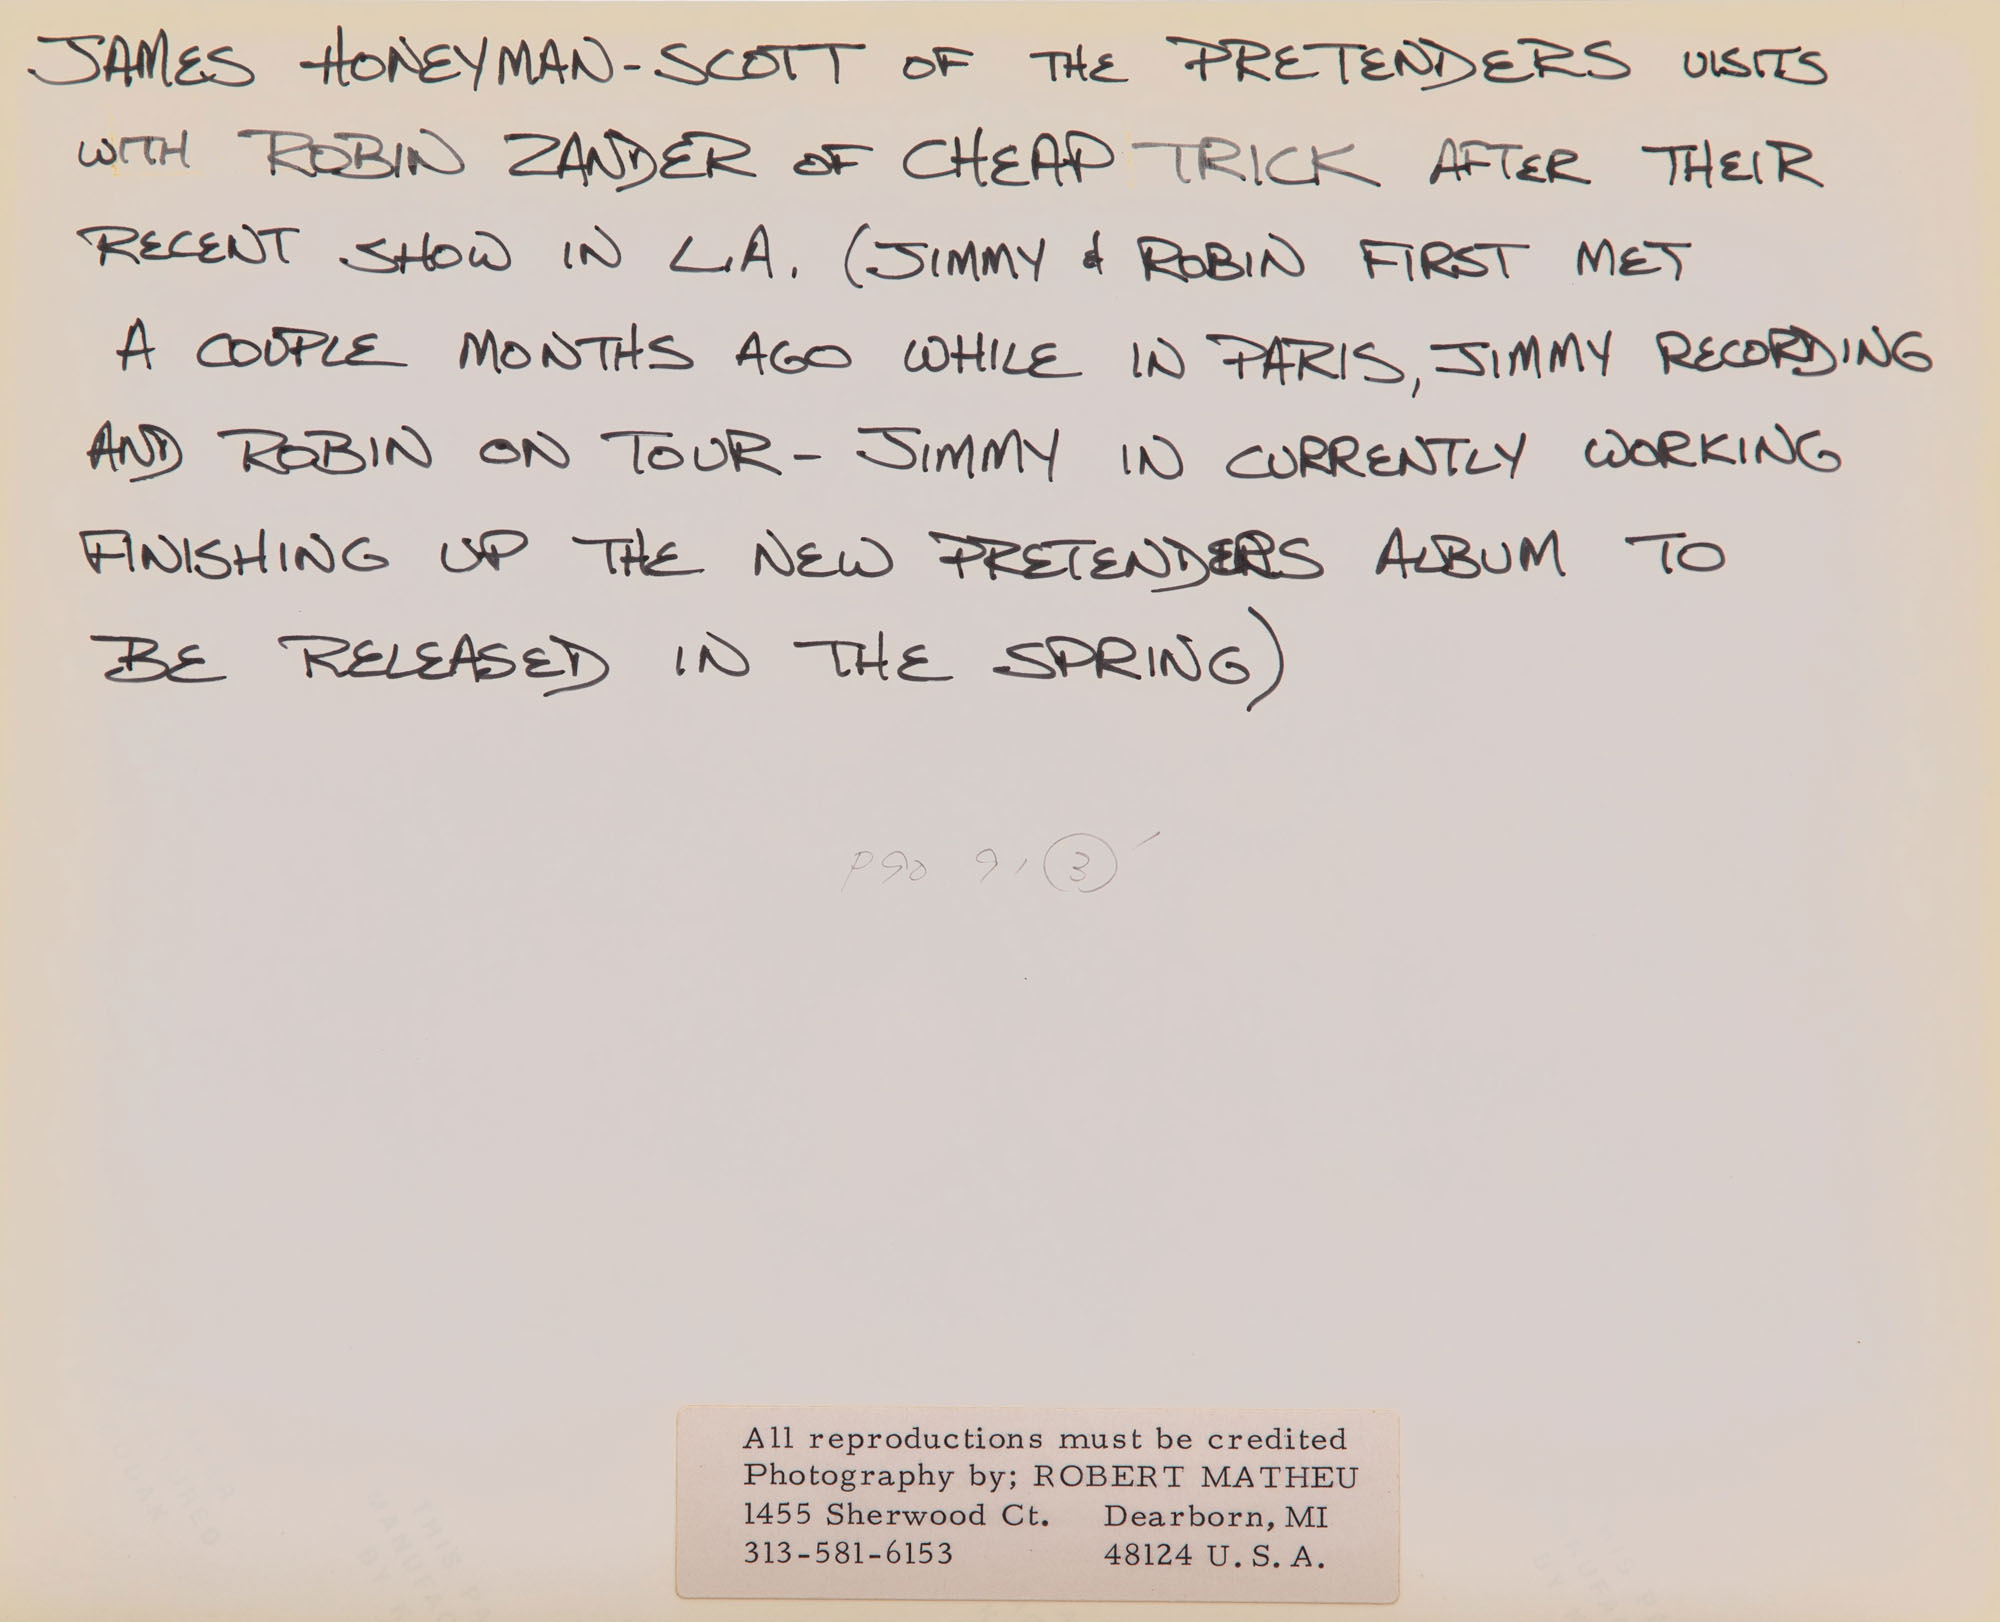 JAMES HONEYMAN-SCOTT OF THE PRETENDERS VISITS
WITH ROBIN ZANDER OF CHEAP TRICK AFTER THEIR
RECENT SHOW IN L.A. (JIMMY & ROBIN FIRST MET
A COUPLE MONTHS AGO WHILE IN PARIS, JIMMY RECORDING
AND ROBIN ON TOUR - JIMMY IN CURRENTLY WORKING
FINISHING UP THE NEW PRETENDERS ALBUM TO
BE RELEASED IN THE SPRING)
3
All reproductions must be credited
Photography by; ROBERT MATHEU
1455 Sherwood Ct. Dearborn, MI
313-581-6153 48124 U.S.A.